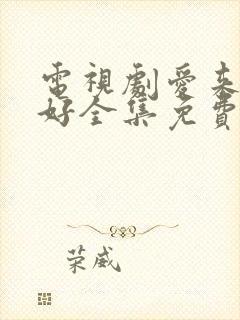 電視劇愛來
好全集免費
荣威